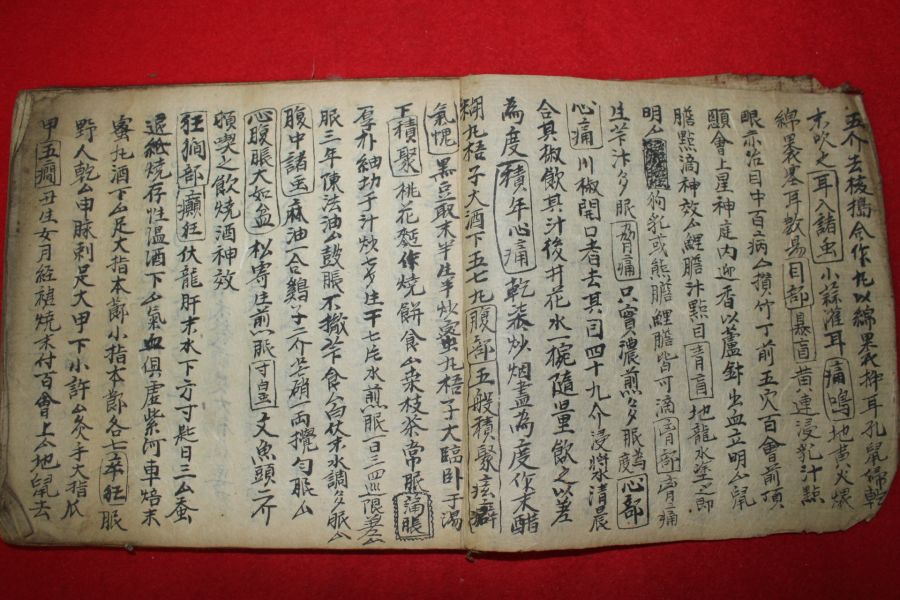 五介去核搗合作丸以綿裹我押耳孔鼠歸乾
末吹之耳入諸虫小蒜灌耳痛鳴地黃火煨
綿裹塞耳數易目部暴盲黃連浸乳汁點
眼赤治目中百病厶攢竹丁前五穴百會前頂
顖會上星神庭內迎香以蘆針出血立明厶鼠
膽點滴神效厶鯉膽汁點目靑盲地龍水塗之卽
明厶狗乳或熊膽鯉膽皆可滴
生芐汁多眼只實濃煎多服心部
心痛川椒開口者去其目四十九介浸漿水淸晨
合其椒飮其汁後井花水一椀隨量飮之以差
爲度積年心痛乾柒炒烟盡爲度作末醋
糊丸梧子大酒下五七丸腹部五般積聚痃癖
氣塊黑豆取末半生半炒蜜丸梧子大臨臥干湯
下積聚桃花麪作燒餠食厶菜枝茶常服脹
厚朴紬切干汁炒七片生干七片水煎服一日三四無限差厶
服三年陳法油厶鼓脹不擇芐食厶白伏末水調多服厶
腹中諸虫麻油一合鷄子二介芒硝一兩攪勻服厶
心腹脹大如盆松寄生煎服寸白大魚頭二介
頓喫之飮燒酒神效
狂癎部癲狂伏龍肝末水下方寸匙日三厶蚕
退紙燒存性溫酒下厶氣血俱虛紫河車焙末
蜜丸酒下厶足大指本節小指本節各七壯卒狂服
野人乾厶申脉刺足大甲下小許厶灸手大指爪
甲五癎丑生女月經襀燒末付百會上厶地鼠去